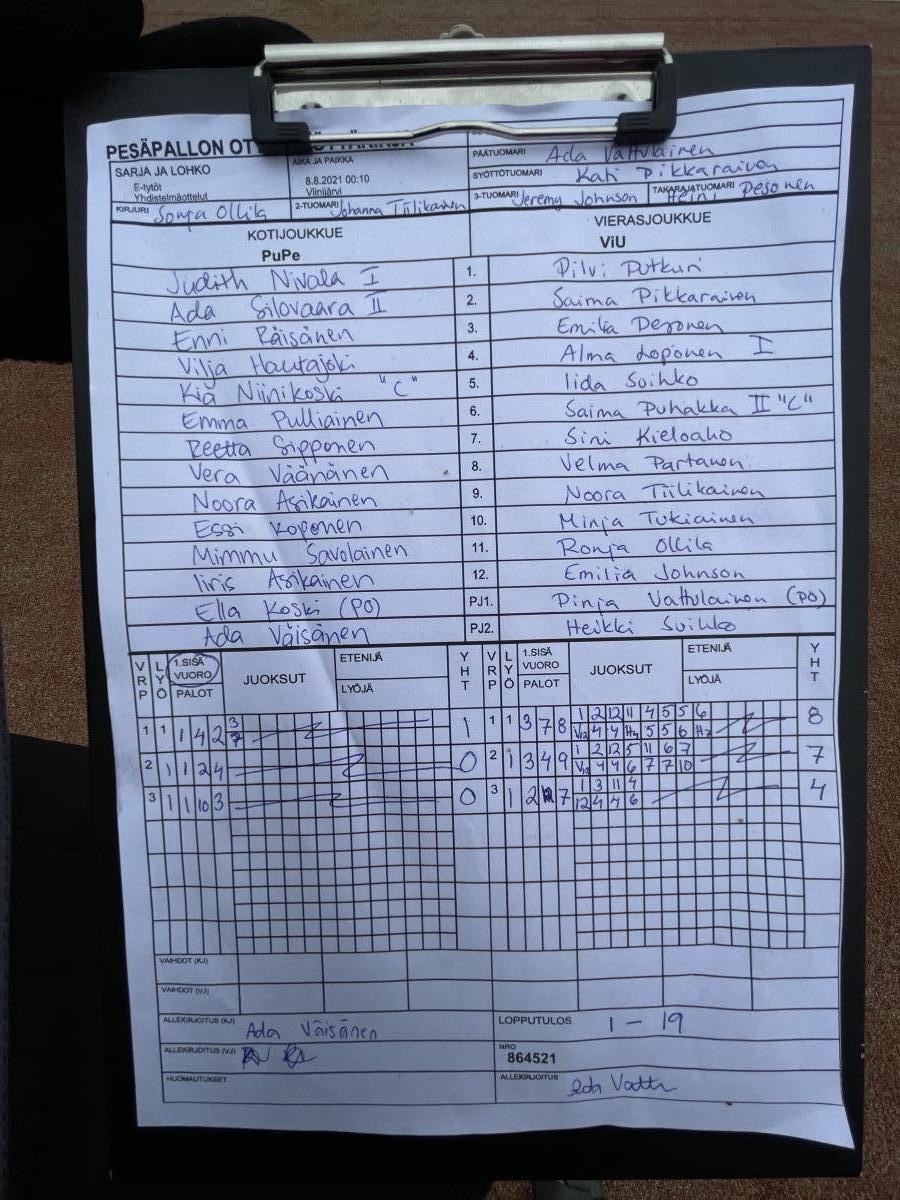 PESÄPALLON OT
PÄÄTUOMARI Ada Vattulainen
SARJA JA LOHKO AIKA JA PAIKKA SYÖTTÖTUOMARI Kati Pikkarainen
E-tytöt 8.8.2021 00:10
Yhdistelmäottelut Viinijärvi
KIRJURI Sonja Ollila 2-TUOMARI Johanna Tiilikainen 3-TUOMARI Jeremy Johnson TAKARAJATUOMARI Heini Pesonen
KOTIJOUKKUE VIERASJOUKKUE
PuPe ViU
Judith Nivala I 1. Pilvi Putkuri
Ada Silovaara II 2. Saima Pikkarainen
Enni Räisänen 3. Emilia Pesonen
Vilja Hautajski 4. Alma Loponen I
Kia Niinikoski "C" 5. Iida Suihko
Emma Pulliainen 6. Saima Puhakka II "C"
Reetta Sipponen 7. Sini Kieloaho
Vera Väänänen 8. Velma Partanen
Noora Asikainen 9. Noora Tiilikainen
Essi Koponen 10. Minja Tukiainen
Mimmu Savolainen 11. Ronja Ollila
Iiris Asikainen 12. Emilia Johnson
Ella Koski (PO) PJ1. Pinja Vattulainen (PO)
Ada Väisänen PJ2. Heikki Suihko
VRP LYÖ 1.SISÄ VUORO PALOT JUOKSUT ETENIJÄ LYÖJÄ YHT VRP LYÖ 1.SISÄ VUORO PALOT JUOKSUT ETENIJÄ LYÖJÄ YHT
1 1 1 4 2 3 1 1 1 3 7 8 1 2 12 11 4 5 5 6 8
7 V12 4 4 H4 5 5 6 H7
2 1 1 2 4 0 2 1 3 4 9 1 2 12 5 11 6 7 7
V12 4 4 6 7 7 10
3 1 1 10 3 0 3 1 2 7 1 3 11 4 4
12 4 4 6
VAIHDOT (KJ)
VAIHDOT (VJ)
ALLEKIRJOITUS (KJ) Ada Väisänen LOPPUTULOS 1 - 19
ALLEKIRJOITUS (VJ) NRO 864521
HUOMAUTUKSET ALLEKIRJOITUS